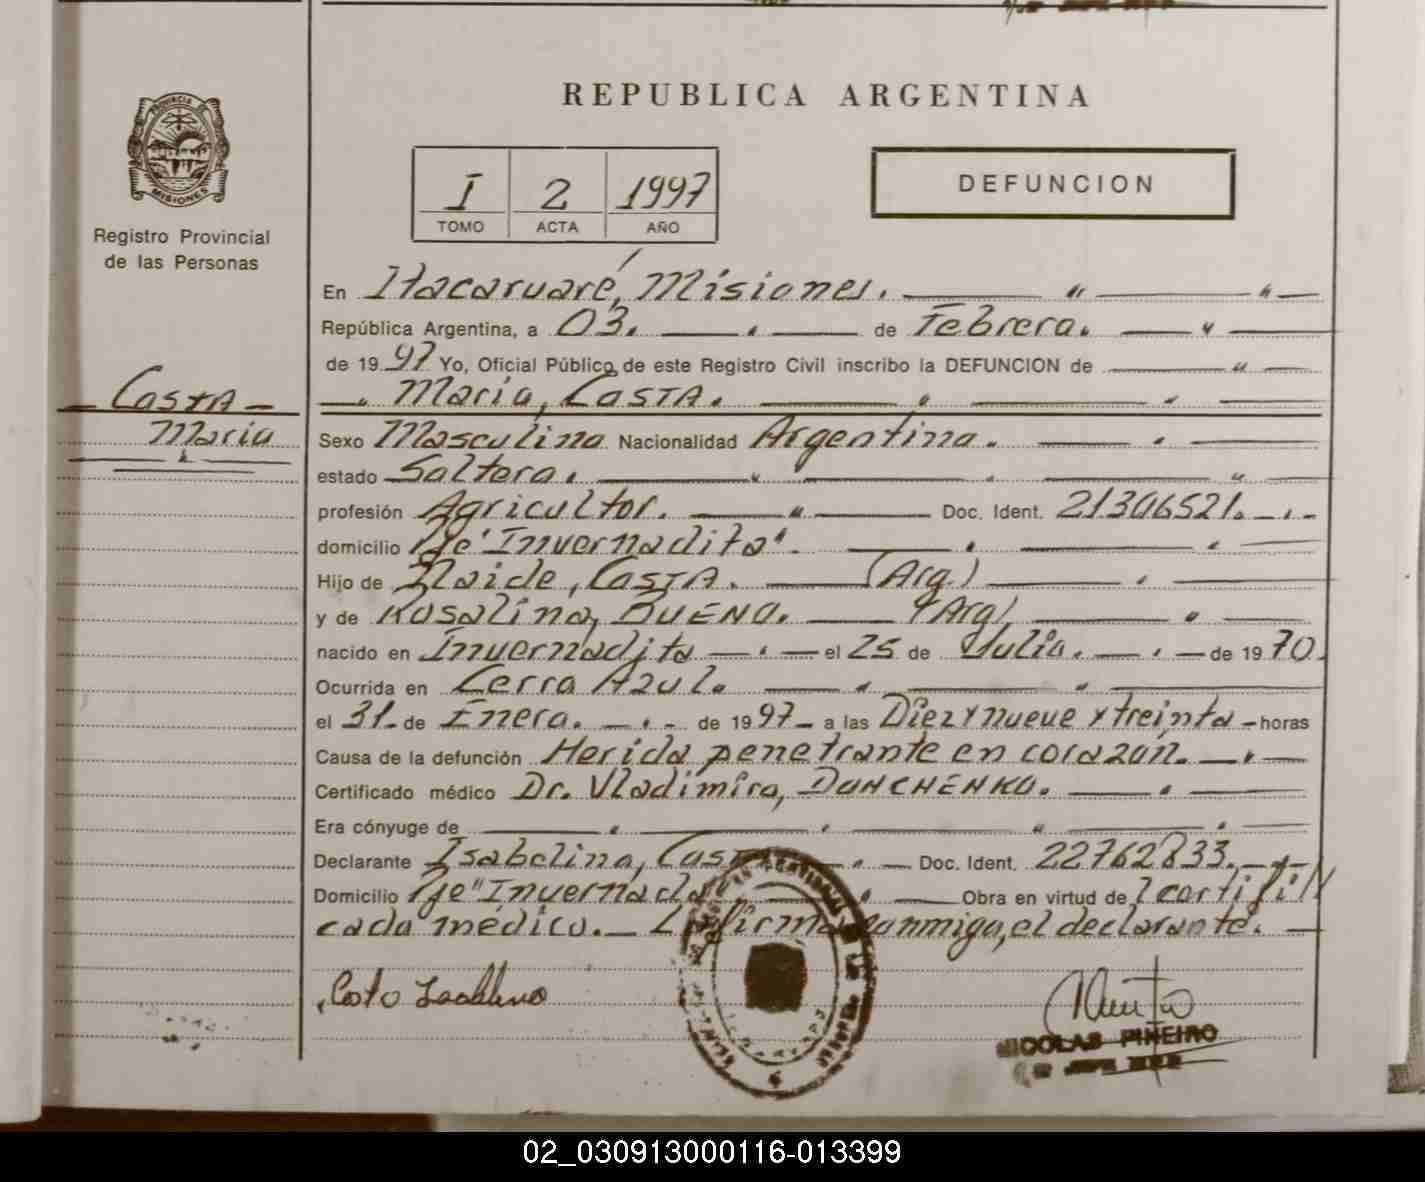 REPUBLICA ARGENTINA
PROVINCIA DE
MISIONES
Registro Provincial
de las Personas
I 2 1997
TOMO ACTA AÑO
DEFUNCION
En Itacaruaré, Misiones.
República Argentina, a 03. de Febrero.
de 1997 Yo, Oficial Público de este Registro Civil inscribo la DEFUNCION de
Costa
Mario
Mario, COSTA.
Sexo Masculino Nacionalidad Argentina.
estado Soltero.
profesión Agricultor. Doc. Ident. 21306521.
domicilio Pje "Invernadita".
Hijo de COSTA. (Arg)
y de Rosalina, BUENO. (Arg)
nacido en Invernadita el 25 de Julio. de 1970.
Ocurrida en Cerro Azul.
el 31 de Enero. de 1997 a las Diez y nueve y treinta horas
Causa de la defunción Herida penetrante en corazón.
Certificado médico Dr. Vladimiro, DONCHENKO.
Era cónyuge de
Declarante Isabelino, Doc. Ident. 22762833.
Domicilio Pje "Invernada Obra en virtud de certifi
cado médico. firma conmigo, el declarante.
NICOLAS PIÑEIRO
02_030913000116-013399